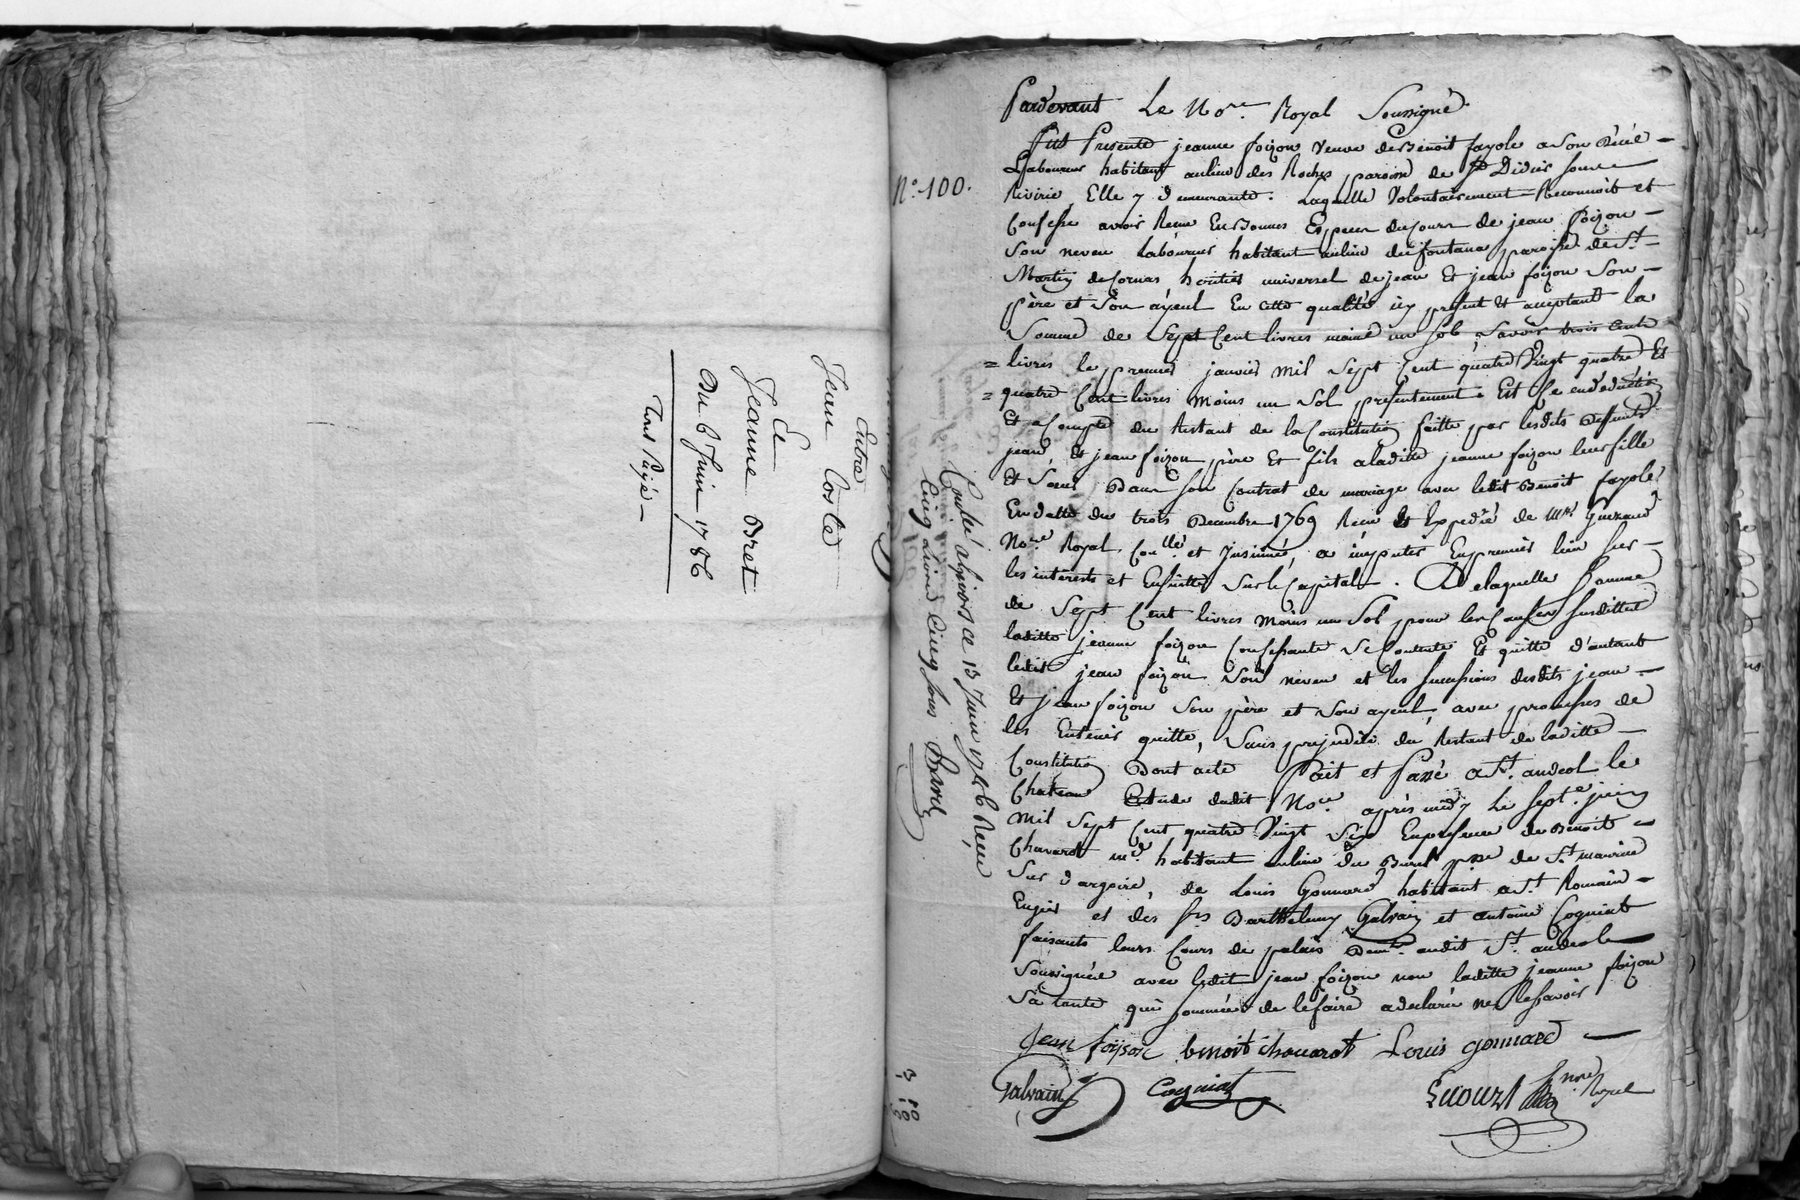 Entre
Jean Coste
Et
Jeanne Bret
Du 6 Juin 1786
Tout Payé
N.º 100.
Controlé a ce 13 Juin 1786 Reçu
Cinq Livres Cinq sous
Pardevant Le No.re Royal Soussigné.
Fut Presente jeanne foizon veuve de Benoit fayole a son décés
Laboureur habitant au lieu des Roches paroisse de St Didier sous
Rivirie, Elle y demeurante. Laquelle Volontairement Reconnoit et
Confesse avoir Reçue En Bonnes Especes du Cours de jean foizon
son neveu Laboureur habitant au lieu du fontana paroisse de St
Martin de Cornas heritier universel de jean Et jean foizon Son
père et Son ayeul En cette qualité icy present Et acceptant la
Somme de Sept Cent livres moins un Sol, Savoir trois cents
= livres le premier janvier Mil Sept Cent quatre Vingt quatre Et
= quatre Cent livres Moins un Sol presentement. Est Ce en déduction
Et a Compte du Restant de la Constitution faitte par lesdits deffunts
jean Et jean foizon père Et fils a laditte jeanne foizon leur fille
Et Sœur Dans Son Contrat de mariage avec ledit Benoit fayole
En datte du trois Decembre 1769 Reçu Et Expedié de Mre
No.re Royal, Con.llé et Insinué, a imputer En premier lieu Sur
les interets et Ensuitte Sur le Capital. De laquelle Somme
de Sept Cent livres Moins un Sol pour les Causes Susdittes
laditte jeanne foizon Confessante Se Contente Et quitte d'autant
ledit jean foizon Son neveu et les Successions desdits jean
Et jean foizon Son père et Son ayeul, avec promesses de
les Entenir quitte, Sans prejudice du Restant de laditte
Constitution Dont acte fait et Passé a St. andeol le
Chateau Etude dudit No.re après midy Le Sept.e juin
Mil Sept Cent quatre Vingt Six En presence de Benoit
Chavarot m.d habitant au lieu du Burel p.sse de St maurice
Sur d'argoire, de Louis Gonnard habitant a St. Romain
En gier et des Srs Barthelemy Galvain et antoine Cogniat
faisants leurs Cours de palais Dem.ts audit St. andeol
Soussignés avec ledit jean foizon non laditte jeanne foizon
Sa tante qui Sommée de le faire a declaré ne le Savoir
Jean foizon benoit chavarot Louis gonnard
Galvain Cogniat no.re Royal